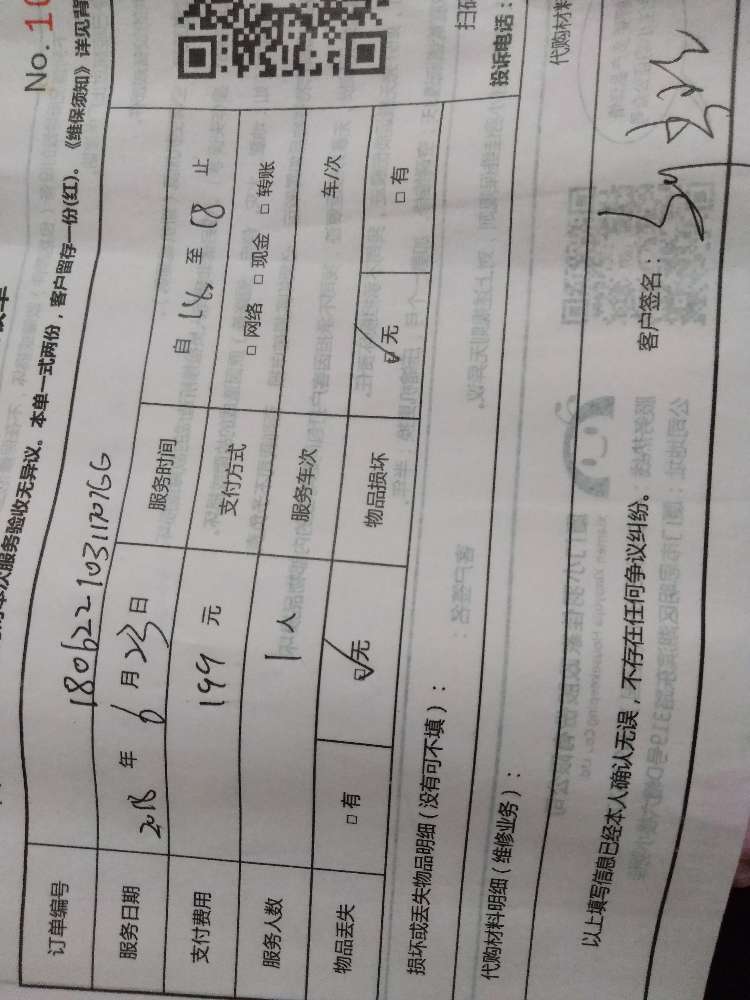 No. 10
本次服务验收无异议。本单一式两份，客户留存一份(红)。《维保须知》详见背
订单编号 180622103117076GG
服务日期 2018 年 6 月 23 日 服务时间 自 14 至 18 止
支付费用 199 元 支付方式 □ 网络 □ 现金 □ 转账
服务人数 1 人 服务车次 车/次
物品丢失 □ 有 ☑ 无 物品损坏 ☑ 无 □ 有
损坏或丢失物品明细（没有可不填）：
代购材料明细（维修业务）：
代购材料
以上填写信息已经本人确认无误，不存在任何争议纠纷。 客户签名：
投诉电话：
扫码